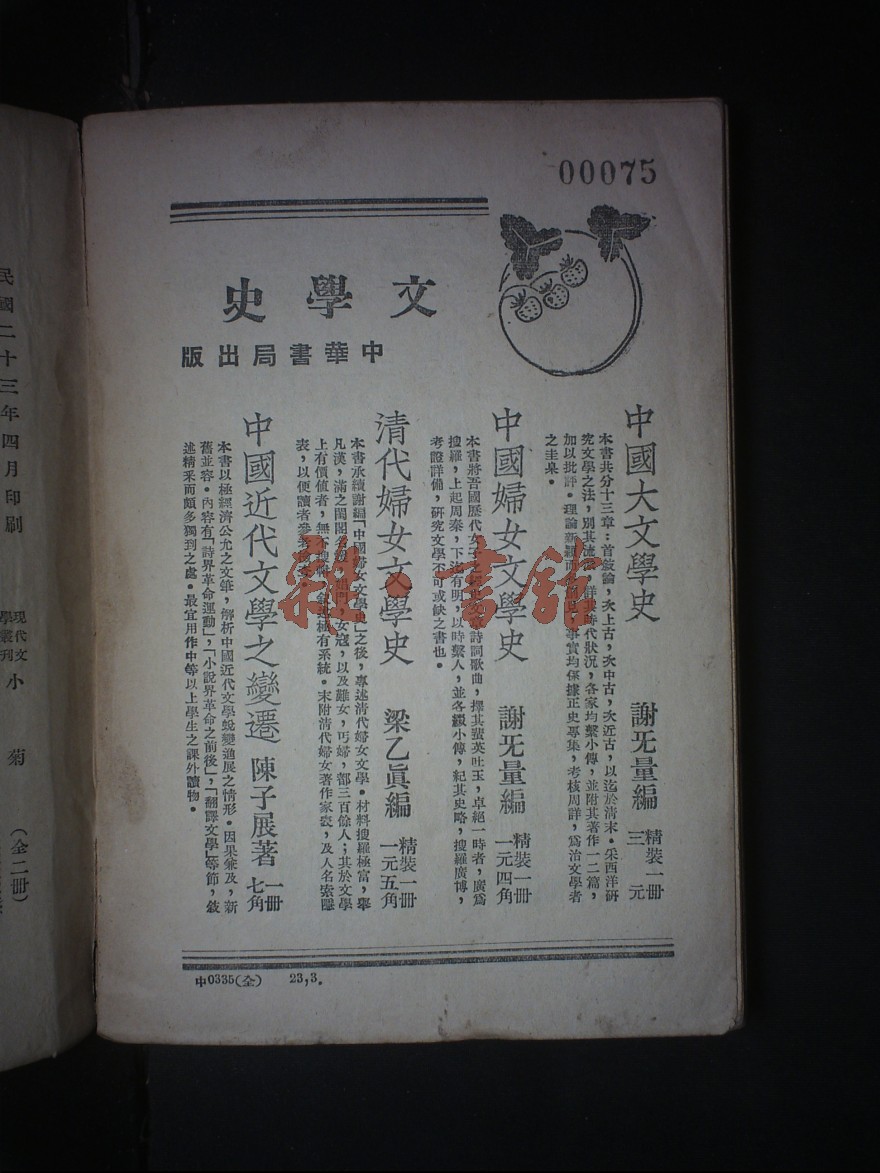 00075
文學史
中華書局出版
中國大文學史 謝无量編 精裝一冊 三元
本書共分十三章：首敍論，次上古，次中古，次近古，以迄於清末。采西洋研
究文學之法，別其流派，詳其時代狀況，各家均繫小傳，並附其著作一二篇，
加以批評。理論新穎，事實均係據正史專集，考核周詳，爲治文學者
之圭臬。
中國婦女文學史 謝无量編 精裝一冊 一元四角
本書將吾國歷代女子詩詞歌曲，擇其蜚英吐玉，卓絕一時者，廣爲
搜羅，上起周秦，下迄有明，以時繫人，並各綴小傳，紀其史略，搜羅廣博，
考證詳備，研究文學不可或缺之書也。
清代婦女文學史 梁乙眞編 精裝一冊 一元五角
本書承續謝編「中國婦女文學史」之後，專述清代婦女文學。材料搜羅極富，舉
凡漢，滿之閨閣名媛，女冠，以及難女，丐婦，都三百餘人；其於文學
上有價值者，無不極有系統。末附清代婦女著作家表，及人名索隱
表，以便讀者參
中國近代文學之變遷 陳子展著 一冊 七角
本書以極經濟公允之文筆，解析中國近代文學蛻變進展之情形。因果兼及，新
舊並容。內容有「詩界革命運動」，「小說界革命之前後」，「翻譯文學」等節，敍
述精采而頗多獨到之處。最宜用作中等以上學生之課外讀物。
中0335(全) 23,3.
民國二十三年四月印刷
現代文
學叢刊
小菊
(全二冊)
雜·書館